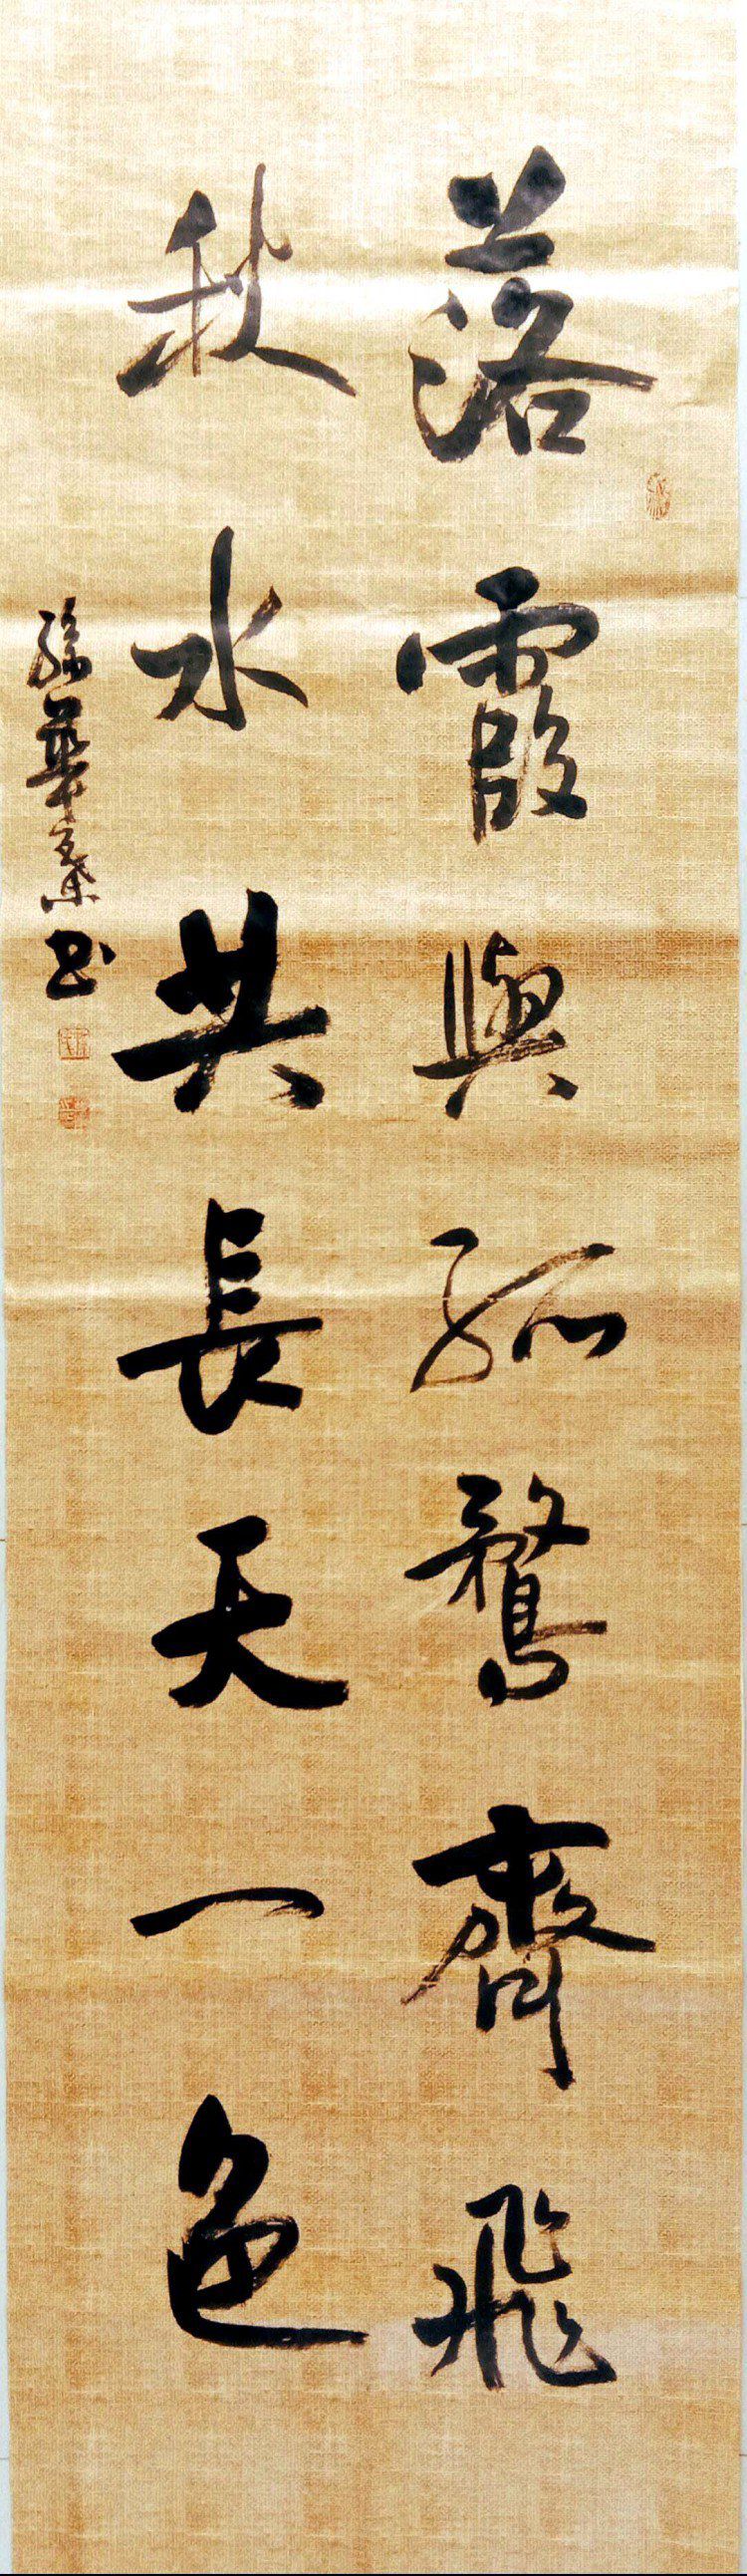 落霞與孤鶩齊飛
秋水共長天一色
孫華業书